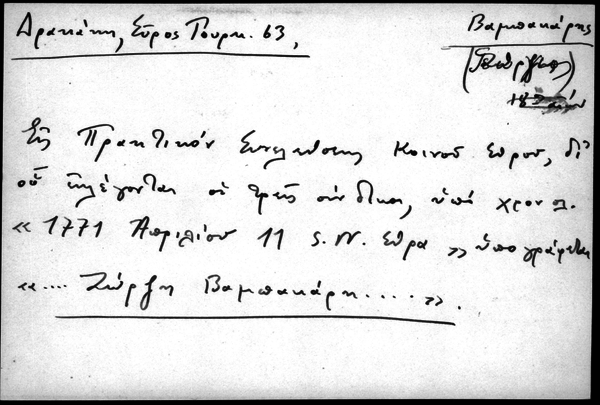 Δρακάκη, Σῦρος Τουρκ. 63,
Βαμπακάρης
(Γεώργιος)
Εἰς Πρακτικὸν Συνελεύσεως Κοινοῦ Σύρου, δι'
οὗ ἐκλέγονται οἱ τρεῖς σύνδικοι, ὑπὸ χρον.
« 1771 Ἀπριλίου 11 S. N. Σύρα » ὑπογράφεται
« .... Ζώρζη Βαμπακάρη .... » .